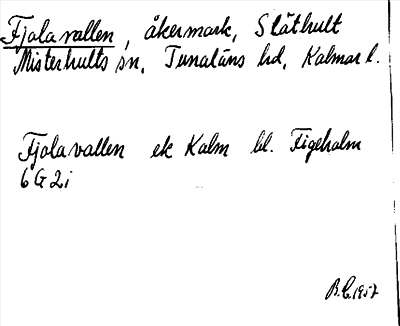 Fjolavallen, åkermark, Slåthult
Misterhults sn, Tunaläns hd, Kalmar l.
Fjolavallen ek Kalm bl. Figeholm
6G2i
B.C. 1957